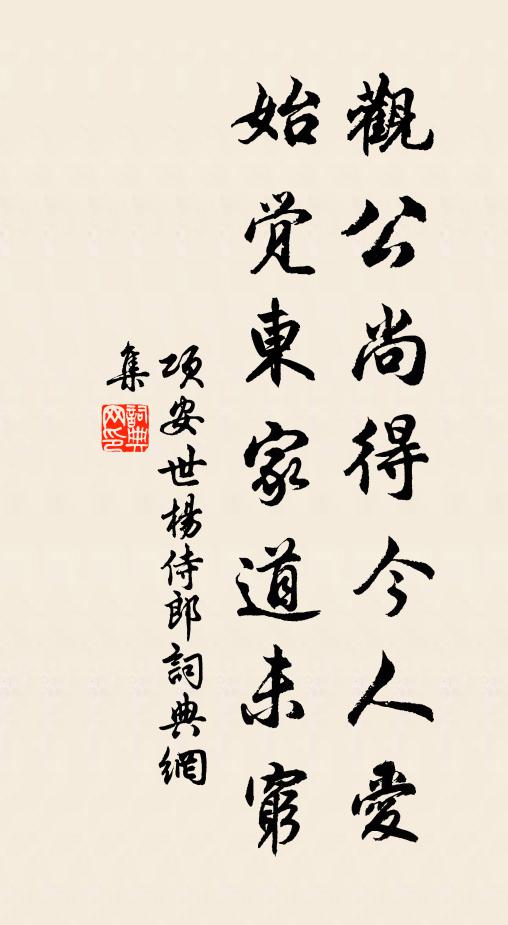 觀公尚得今人愛
始覚東家道未窮
項安世楊侍郎詞典網
集
詞典网印